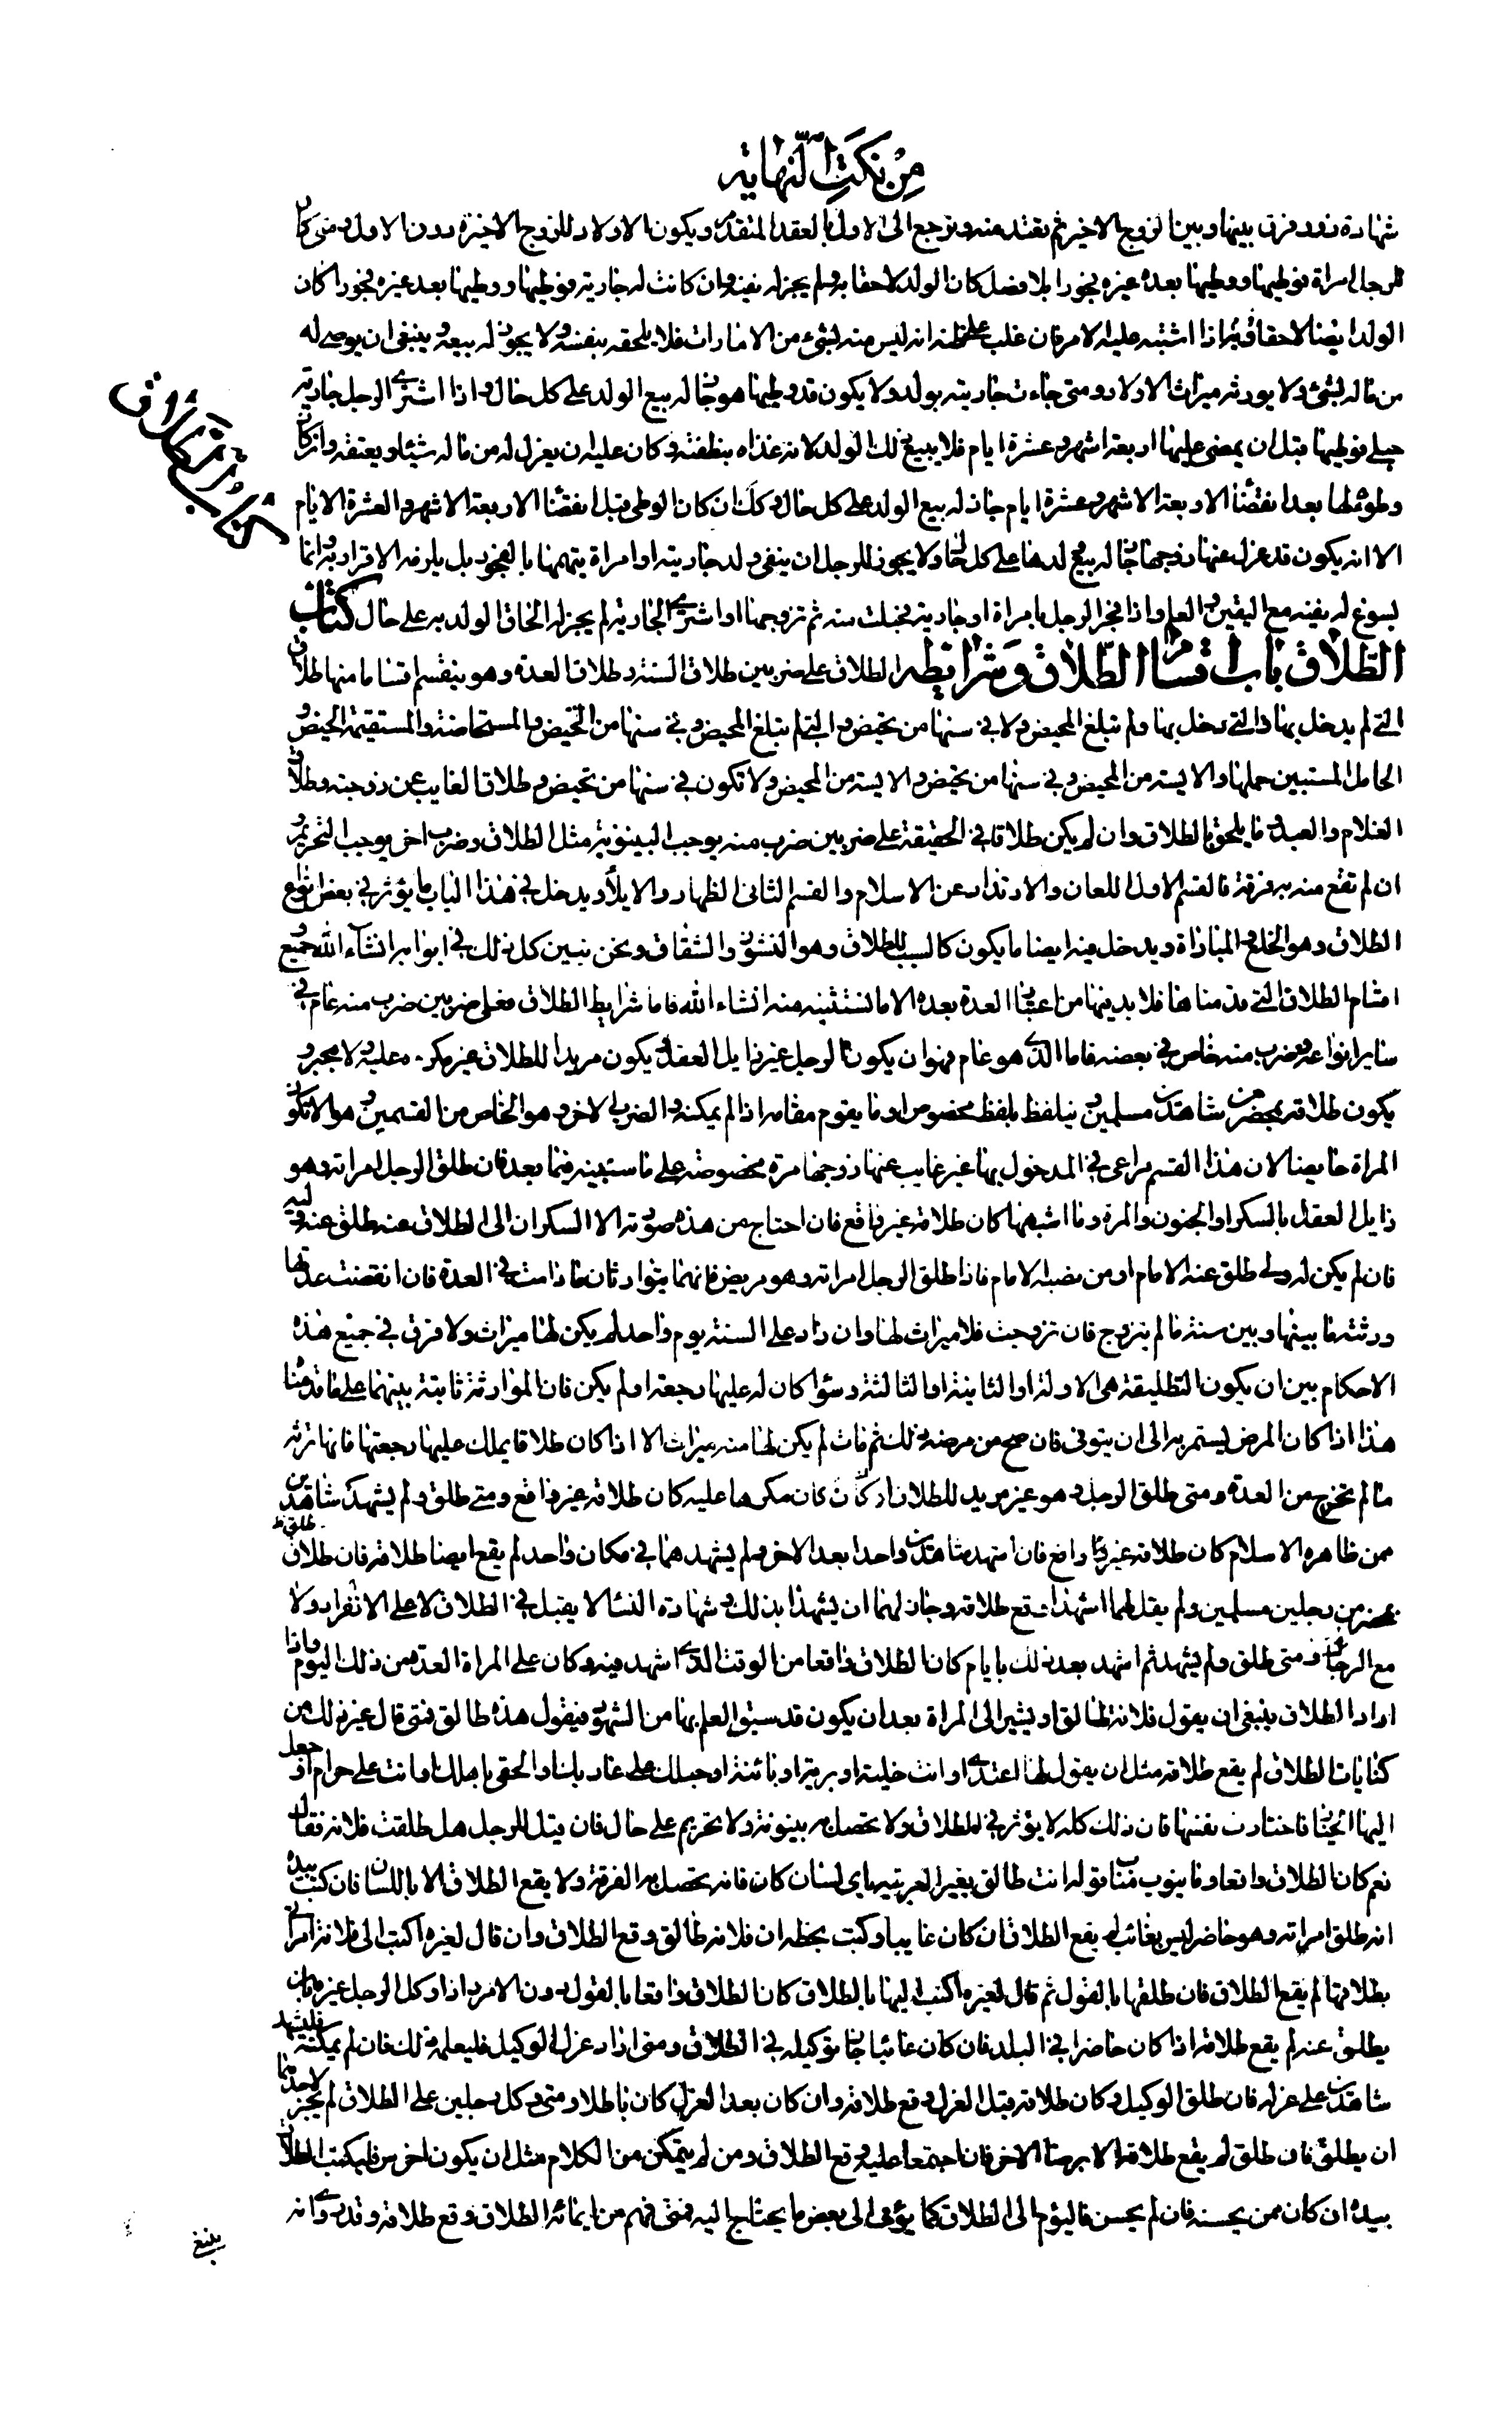 مِنْ نُكَتِ النّهاية
شهادة زور فرق بينها وبين الزوج الاخير ثم تعتد منه وترجع الى الاول بالعقد المتقدم ويكون الاولاد للزوج الاخير دون الاول ومتى كان
للرجل امراة فوطيها ووطيها بعده غيره فجورا بلا فصل كان الولد لاحقا به ولم يجز له نفيه وان كانت له جارية فوطيها ووطيها بعد غيره فجورا كان
الولد ايضا لاحقا به فاذا اشتبه عليه الامر فان غلب على ظنه انه ليس منه بشيء من الامارات فلا يلحقه بنفسه ولا يجوز له بيعه وينبغي ان يوصي له
من ماله بشيء ولا يورثه ميراث الاولاد ومتى جاءت جاريته بولد ولا يكون قد وطيها هو جاز له بيع الولد على كل حال واذا اشترى الرجل جارية
حبلى فوطيها قبل ان يمضى عليها اربعة اشهر وعشرة ايام فلا يبيع ذلك الولد لانه غذاه بنطفته وكان عليه ان يعزل له من ماله شيئا ويعتقه وان كان
وطوئه لها بعد انقضاء الاربعة الاشهر وعشرة ايام جاز له بيع الولد على كل حال وكذلك ان كان الوطى قبل انقضاء الاربعة الاشهر والعشرة الايام
الا انه يكون قد عزل عنها زوجها جاز له بيع ولدها على كل حال ولا يجوز للرجل ان ينفى ولد جاريته او امراة يتهمها بالفجور بل يلزمه الاقرار به وانما
يسوغ له نفيه مع اليقين والعلم واذا فجر الرجل بامراة او جارية فحبلت منه ثم تزوجها او اشترى الجارية لم يجز له الحاق الولد به على حال كتاب
الطلاق باب اقسام الطلاق وشرائطه الطلاق على ضربين طلاق السنة وطلاق العدة وهو ينقسم اقساما منها طلاق
التى لم يدخل بها والتى دخل بها ولم تبلغ المحيض ولا في سنها من تحيض والتى لم تبلغ المحيض وفي سنها من تحيض والمستحاضة والمستقيمة الحيض و
الحامل المستبين حملها والايسة من المحيض وفي سنها من تحيض والايسة من المحيض ولا تكون في سنها من تحيض وطلاق الغايب عن زوجته وطلاق
الغلام والعبد وما يلحق بالطلاق وان لم يكن طلاقا في الحقيقة على ضربين ضرب منه يوجب البينونة مثل الطلاق وضرب اخر يوجب التحريم و
ان لم تقع منه به فرقة فالقسم الاول اللعان والارتداد عن الاسلام والقسم الثانى الظهار والايلاء ويدخل في هذا الباب ما يؤثر في بعض انواع
الطلاق وهو الخلع والمباراة ويدخل فيه ايضا ما يكون كالسبب للطلاق وهو النشوز والشقاق ونحن نبين كل ذلك في ابوابه انشاء الله وجميع
اقسام الطلاق التى قدمناها فلا بد فيها من اعتبار العدة بعده الا ما نستثنيه منه انشاء الله فاما شرايط الطلاق فعلى ضربين ضرب منه عام في
ساير انواعه وضرب منه خاص في بعضه فاما الذى هو عام فهو ان يكون الرجل غير زايل العقل ويكون مريدا للطلاق غير مكره عليه ولا مجبر و
يكون طلاقه بمحضر من شاهدين مسلمين ويتلفظ بلفظ مخصوص او ما يقوم مقامه اذا لم يمكنه والضرب الاخر وهو الخاص من القسمين وهو الا تكون
المراة حايضا لان هذا القسم مراعى في المدخول بها غير غايب عنها زوجها مدة مخصوصة على ما سنبينه فيما بعد فان طلق الرجل امراته وهو
زايل العقل بالسكر او الجنون والمرة وما اشبهها كان طلاقه غير واقع فان احتاج من هذه صورته الا السكران الى الطلاق عنه طلق عنه وليه
فان لم يكن له ولى طلق عنه الامام او من نصبه الامام فاذا طلق الرجل امراته وهو مريض فانهما يتوارثان ما دامت في العدة فان انقضت عدتها
ورثته ما بينها وبين سنة ما لم يتزوج فان تزوجت فلا ميراث لها وان زاد على السنة يوم واحد لم يكن لها ميراث ولا فرق في جميع هذه
الاحكام بين ان يكون التطليقة هى الاولة او الثانية او الثالثة وسواء كان له عليها رجعة او لم يكن فان الموارثة ثابتة بينهما على ما قدمناه
هذا اذا كان المرض يستمر به الى ان يتوفى فان صح من مرضه ذلك ثم مات لم يكن لها منه ميراث الا اذا كان طلاقا يملك عليها رجعتها فانها ترثه
ما لم تخرج من العدة ومتى طلق الرجل وهو غير مريد للطلاق او كان مكرها عليه كان طلاقه غير واقع ومتى طلق ولم يشهد شاهدين
ممن ظاهره الاسلام كان طلاقه غير واقع فان اشهد شاهدين واحدا بعد الاخر ولم يشهدهما في مكان واحد لم يقع ايضا طلاقه فان طلاق طلق ظ
بمحضر من رجلين مسلمين ولم يقل لهما اشهدا وقع طلاقه وجاز لهما ان يشهدا بذلك وشهادة النساء لا يقبل في الطلاق لا على الانفراد ولا
مع الرجال ومتى طلق ولم يشهد ثم اشهد بعد ذلك بايام كان الطلاق واقعا من الوقت الذى اشهد فيه وكان على المراة العدة من ذلك اليوم واذا
اراد الطلاق ينبغى ان يقول فلانة طالق او يشير الى المراة بعد ان يكون قد سبق العلم بها من الشهود فيقول هذه طالق فمتى قال غير ذلك من
كنايات الطلاق لم يقع طلاقه مثل ان يقول لها اعتدى او انت خلية او برية او باتنة او حبلك على غاربك او الحقى باهلك او انت على حرام او جعل
اليها الخيار فاختارت نفسها فان ذلك كله لا يؤثر في الطلاق ولا تحصل به بينونة ولا تحريم على حال فان قيل للرجل هل طلقت فلانة فقال
نعم كان الطلاق واقعا وما ينوب مناب قوله انت طالق بغير العربية باى لسان كان فانه تحصل به الفرقة ولا يقع الطلاق الا باللسان فان كتب بيده
انه طلق امراته وهو حاضر ليس بغائب لم يقع الطلاق فان كان غايبا وكتب بخطه ان فلانة طالق وقع الطلاق وان قال لغيره اكتب الى فلانة امراتى
بطلاقها لم يقع الطلاق فان طلقها بالقول ثم قال لغيره اكتب اليها بالطلاق كان الطلاق واقعا بالقول دون الامر واذا وكل الرجل غيره بان
يطلق عنه لم يقع طلاقه اذا كان حاضرا في البلد فان كان غائبا جاز توكيله في الطلاق ومتى اراد عزل الوكيل فليعلمه ذلك فان لم يمكنه فليشهد
شاهدين على عزله فان طلق الوكيل وكان طلاقه قبل العزل وقع طلاقه وان كان بعد العزل كان باطلا ومتى وكل رجلين على الطلاق لم يجز لاحدهما
ان يطلق فان طلق لم يقع طلاقه الا برضا الاخر فان اجتمعا عليه وقع الطلاق ومن لم يتمكن من الكلام مثل ان يكون اخرس فليكتب الطلاق
بيده ان كان ممن يحسنه فان لم يحسن فاليؤم الى الطلاق كما يؤمى الى بعض ما يحتاج اليه فمتى فهم من ايمائه الطلاق وقع طلاقه وقد روى انه
كتاب الطلاق
ينبغى